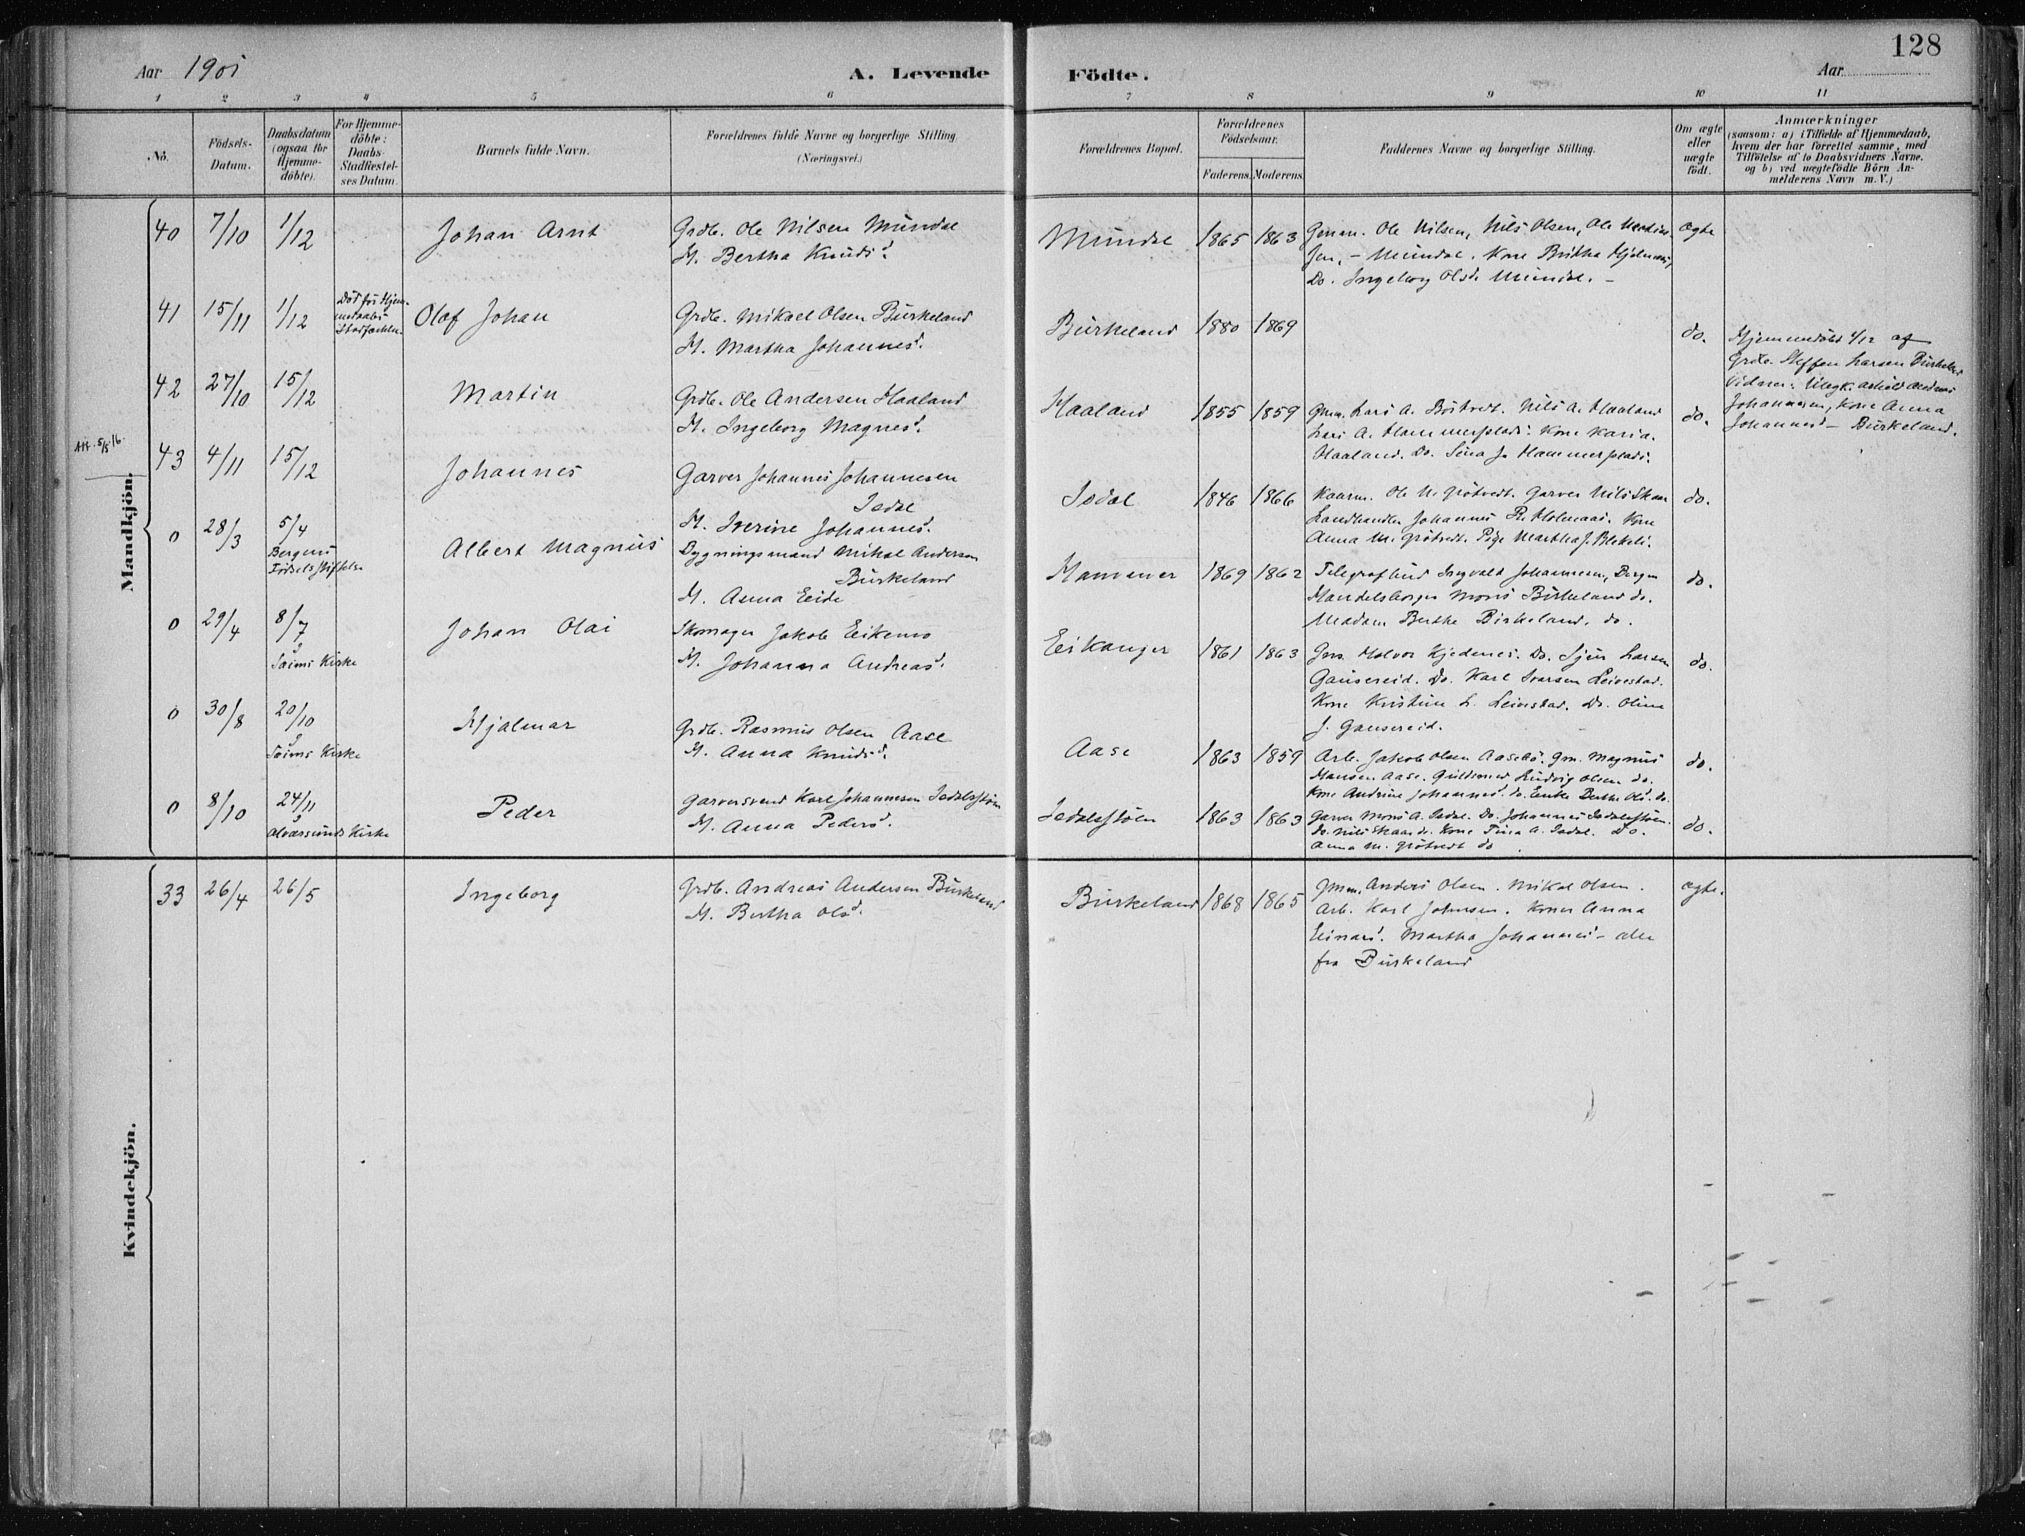 128
Aar 1901
A. Levende Födte.
Aar
1 2 3 4 5 6 7 8 9 10 11
No.
Födsels-Datum.
Daabsdatum (ogsaa for Hjemme-döbte).
For Hjemme-döbte: Daabs-Stadfæstel-ses Datum.
Barnets fulde Navn.
Forældrenes fulde Navne og borgerlige Stilling. (Næringsvei.)
Forældrenes Bopæl.
Forældrenes Födselsaar.
Faderens. Moderens.
Faddernes Navne og borgerlige Stilling.
Om ægte eller uægte födt.
Anmærkninger
(saasom: a) i Tilfælde af Hjemmedaab, hvem der har forrettet samme, med Tilföielse af to Daabsvidners Navne. og b) ved uægtefödte Börn An-melderens Navn m. V.)
Mandkjön.
40 7/10 1/12 Johan Arnt
Grdb. Ole Nilsen Mundal
H. Bertha Knudsd.
Mundal 1865 1863
Gmm. Ole Nilsen, Nils Olsen, Ole
- Mundal. Kone Britha
Do. Ingeborg Olsd. Mundal. -
ægte
41 15/11 1/12
Död för Hjem-
medaabs
Olaf Johan
Grdb. Mikael Olsen Birkeland
H. Martha Johannesd.
Birkeland 1880 1869
do.
Hjemmedöbt 4/12 af
Grdb. Steffen Larsen Birkeland
Vidner: Ungk.
Johannesen, Kone Anna
Johannesd - Birkeland.
42 27/10 15/12 Martin
Grdb. Ole Andersen Haaland
H. Ingeborg Magnesd.
Haaland 1855 1859
Gmm. Lars A. Nils A. Haaland
Lars A. Hammerplads. Kone Karia
Haaland. Do. Sina J. Hammerplads.
do.
43 4/11 15/12 Johannes
Garver Johannes Johannesen
Isdal
H. Iverine Johannesd.
Isdal 1846 1866
Ole N. Garver Nils Skaar
Landhandler Johannes R. Kone
Anna M. Pige Martha J.
do.
0 28/3 5/4
Bergens
Födselsstiftelse
Albert Magnus
Bygningsmand Mikal Andersen
Birkeland
H. Anna Eide
1869 1862
Telegrafbud Ingvald Johannesen, Bergen
Handelsborger Mons Birkeland do.
Madam Berthe Birkeland. do.
do.
0 29/4 8/7
Kirke
Johan Olai
Skomager Jakob Eikemo
H. Johanna Andreasd.
Eikanger 1861 1863
Gm. Halvor Kjedenes. Do. Sjur Larsen
Gausereid. Do. Karl Ivarsen Leivestad.
Kone Kristine L. Leivestad. Do. Oline
J. Gausereid.
do.
0 30/8 20/10
Kirke
Hjalmar
Grdb. Rasmus Olsen Aase
H. Anna Knudsd.
Aase 1863 1859
Arb. Jakob Olsen Gm. Magnus
Hansen Aase. Guldsmed Ludvig Olsen do.
Kone Andrine Johannesd. do. Enke Berthe Olsd. do.
do.
0 8/10 24/11
Alversunds Kirke
Peder
Garversvend Karl Johannesen Isdalsstöen
H. Anna Pedersd.
Isdalsstöen 1863 1863
Garver Mons A. Isdal. Do. Johannes Isdalsstöen.
do. Nils Skaar do. Kone Tina A. Isdal. Do.
Anna M. do
do.
Kvindekjön.
33 26/4 26/5 Ingeborg
Grdb. Andreas Andersen Birkeland
H. Bertha Olsd.
Birkeland 1868 1865
Gmm. Anders Olsen. Mikal Olsen.
Arb. Karl Johnsen. Koner Anna
Einarsd. Martha Johannesd - alle
fra Birkeland
ægte.